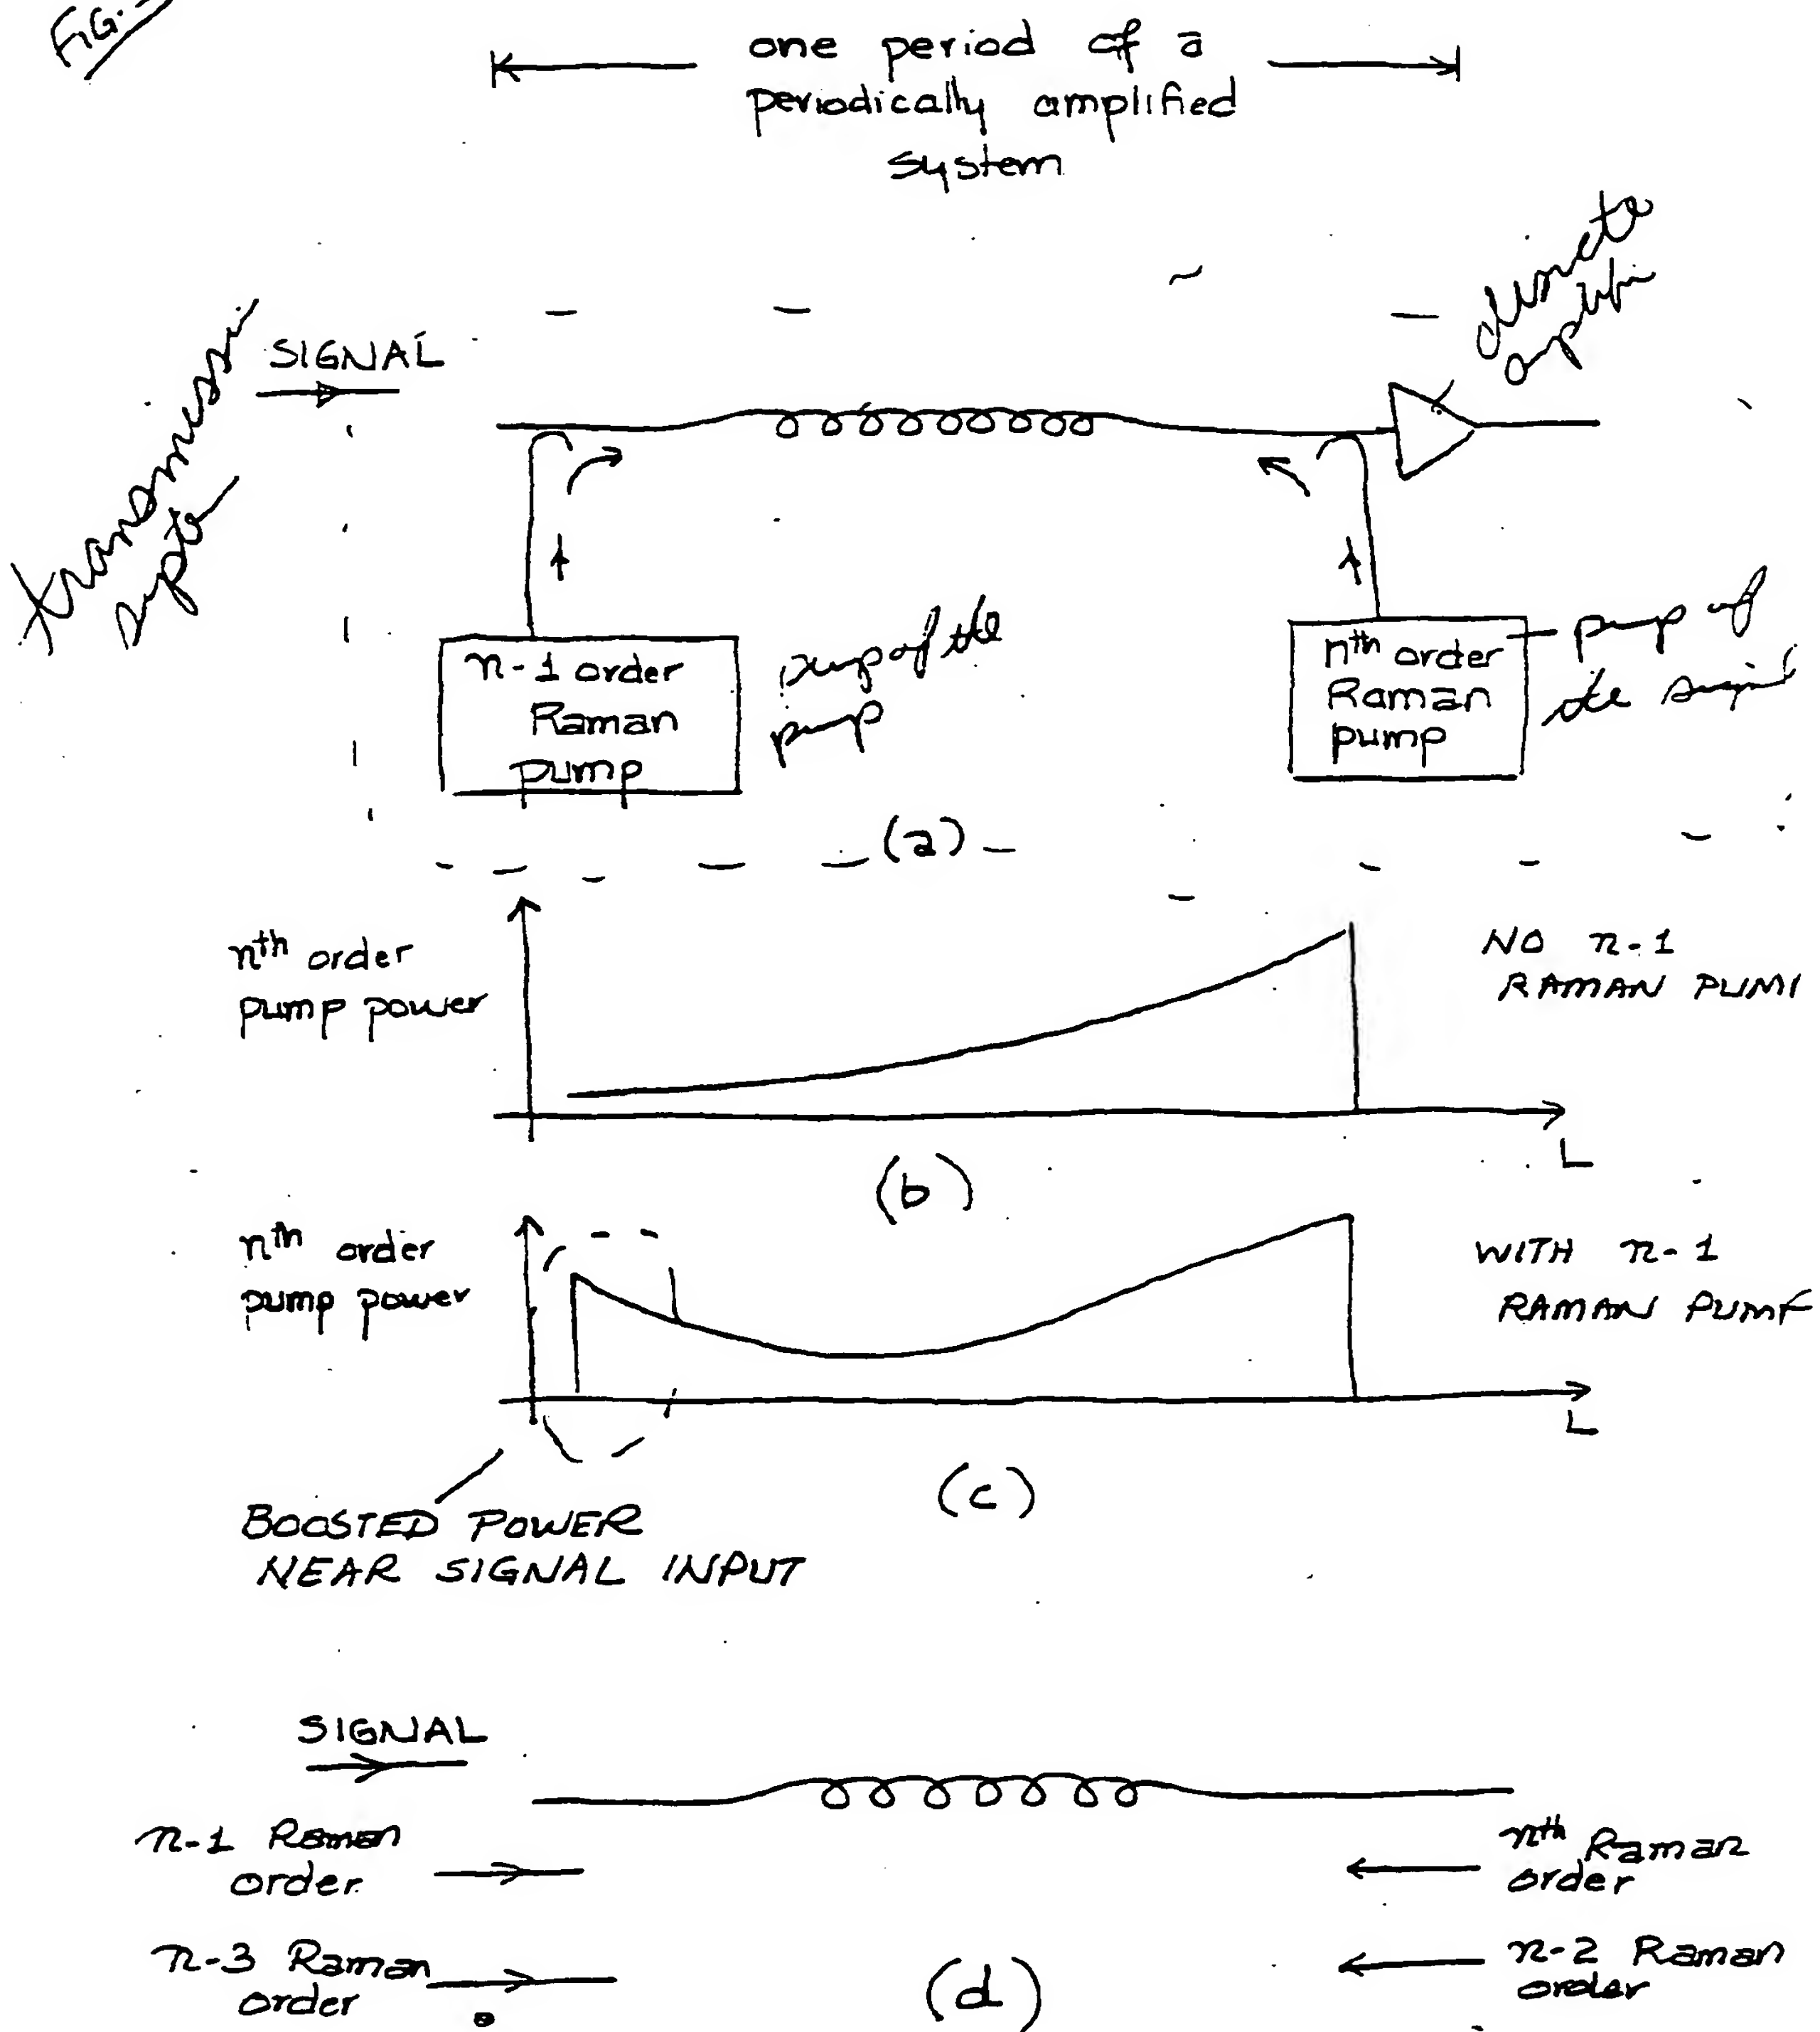 FIG.
one period of a
periodically amplified
system
SIGNAL
n-1 order
Raman
pump
pump of the
pump
nth order
Raman
pump
pump of
(a)
nth order
pump power
NO n-1
RAMAN PUM
L
(b)
nth order
pump power
WITH n-1
RAMAN PUM
L
(c)
BOOSTED POWER
NEAR SIGNAL INPUT
SIGNAL
n-1 Raman
order
nth Raman
order
n-3 Raman
order
n-2 Raman
order
(d)